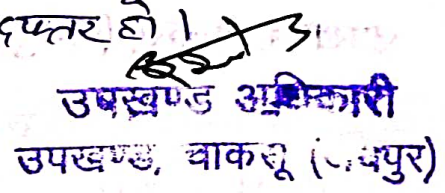 दफ्तर हो।
उपखण्ड अधिकारी
उपखण्ड, चाकसू (जयपुर)